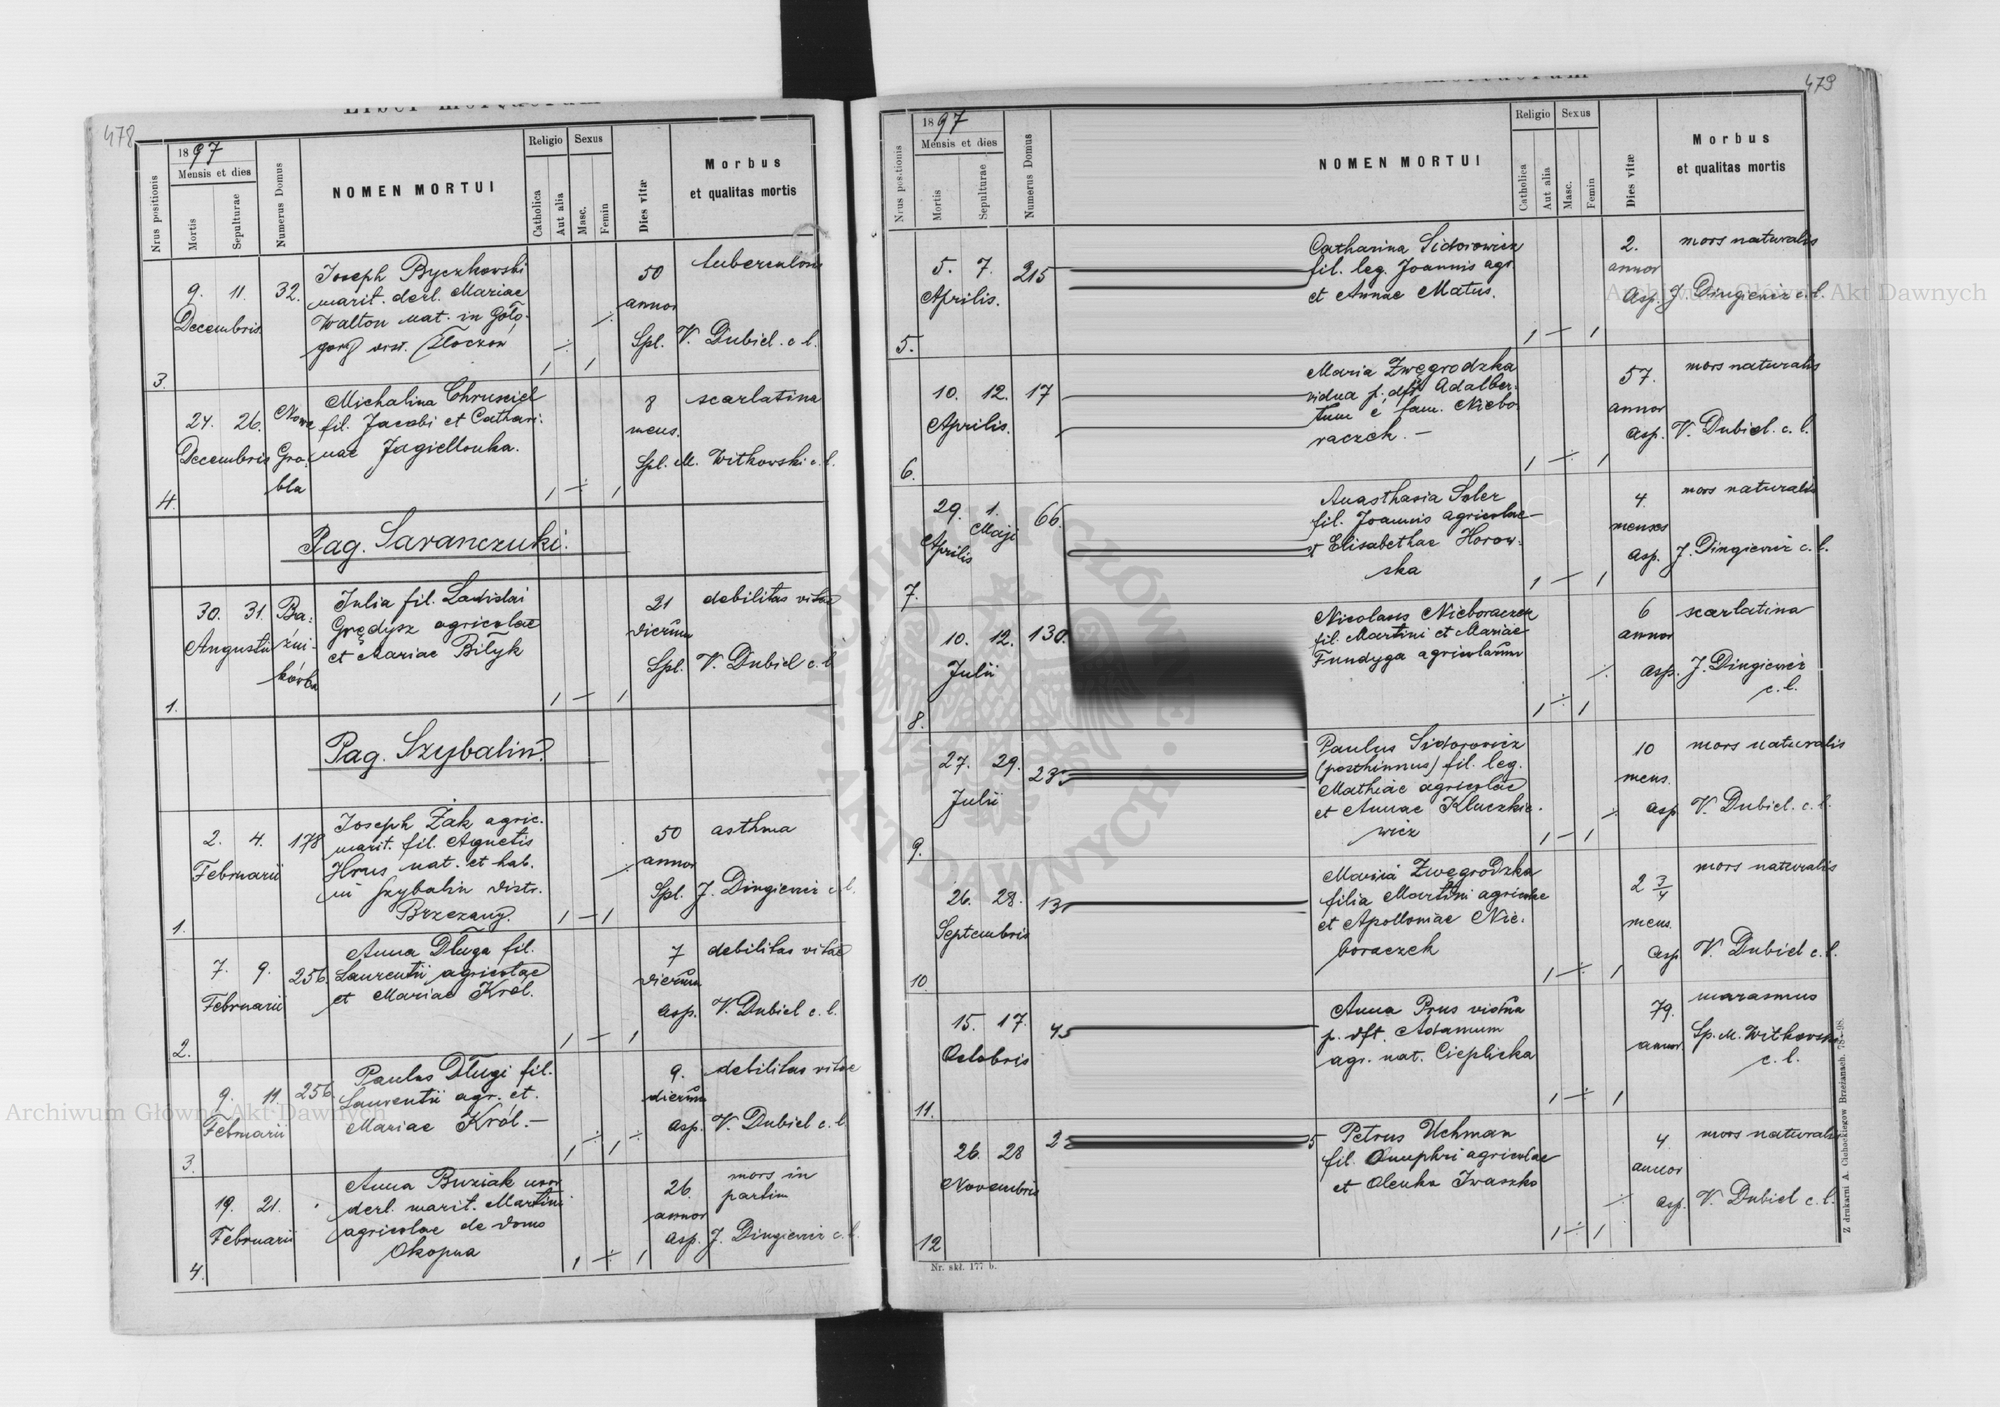 478
Liber mortuorum
1897
Nrus positionis
Mensis et dies
Mortis
Sepulturae
Numerus Domus
NOMEN MORTUI
Religio
Catholica
Aut alia
Sexus
Masc.
Femin
Dies vitæ
Morbus
et qualitas mortis
3.
9. 11.
Decembris
32.
Joseph Byczkowski
marit. derl. Mariae
Walton nat. in Goło-
gory
Złoczów
50
annor
tuberculosis
Spl. V. Dubiel. c. l.
4.
24. 26.
Decembris
Nowa
Gro-
bla
Michalina Chruściel
fil. Jacobi et Cathari-
nae Jagiellonka.
8
mens.
scarlatina
Spl. M. Witkowski c. l.
Pag. Saranczuki.
1.
30. 31.
Augusti
Ba-
źni-
kówka
Julia fil. Ladislai
Grędysz agricolae
et Mariae Bilyk
21
dierum
debilitas vitae
Spl. V. Dubiel c. l.
Pag. Szybalin.
1.
2. 4.
Februarii
178
Joseph Żak agric.
marit. fil. Agnetis
Hrus nat. et hab.
in Szybalin distr.
Brzeżany.
50
annor
asthma
Spl. J. Dingiewicz c. l.
2.
7. 9.
Februarii
256.
Anna Długa fil.
Laurentii agricolae
et Mariae Król.
7
dierum
debilitas vitae
asp. V. Dubiel c. l.
3.
9. 11.
Februarii
256.
Paulus Długi fil.
Laurentii agr. et.
Mariae Król. -
9.
dierum
debilitas vitae
asp. V. Dubiel c. l.
4.
19. 21.
Februarii
Anna Buziak uxor
derl. marit. Martini
agricolae de domo
Okopna
26.
annor
mors in
partu
asp. J. Dingiewicz c. l.
479
1897
Nrus positionis
Mensis et dies
Mortis
Sepulturae
Numerus Domus
NOMEN MORTUI
Religio
Catholica
Aut alia
Sexus
Masc.
Femin
Dies vitæ
Morbus
et qualitas mortis
5.
5. 7.
Aprilis.
215
Catharina Sidorowicz
fil. leg. Joannis agr.
et Annae Matus.
2.
annor
mors naturalis
asp. J. Dingiewicz c. l.
6.
10. 12.
Aprilis.
17
Maria Zwęgrodzka
vidua p. dft Adalber-
tum e fam. Niebo-
raczek. -
57.
annor
mors naturalis
asp. V. Dubiel. c. l.
7.
29. 1.
Aprilis Maji
66.
Anasthasia Soler
fil. Joannis agricolae
et Elisabethae Horow-
ska
4.
menses
mors naturalis
asp. J. Dingiewicz c. l.
8.
10. 12.
Julii
130.
Nicolaus Nieboraczek
fil. Martini et Mariae
Fundyga agricolarum
6
annor
scarlatina
asp. J. Dingiewicz
c. l.
9.
27. 29.
Julii
Paulus Sidorowicz
(posthumus) fil. leg.
Mathiae agricolae
et Annae Kluczkie-
wicz
10
mens.
mors naturalis
asp V. Dubiel. c. l.
10.
26. 28.
Septembris
Maria Zwęgrodzka
filia Martini agricolae
et Apolloniae Nie-
boraczek
2 3/4
mens.
mors naturalis
asp V. Dubiel c. l.
11.
15. 17.
Octobris
45
Anna Prus vidua
p. dft. Adamum
agr. nat. Cieplicka
79.
annor
marasmus
Sp. M. Witkowski
c. l.
12
26. 28
Novembris
Petrus Uchman
fil. Onuphri agricolae
et Olenka Iwaszko
4
annor
mors naturalis
asp. V. Dubiel c. l.
Nr. skł. 177 b.
Z drukarni A. Ciohackiegow Brzeżanach. 78-98.
Archiwum Główne Akt Dawnych
Archiwum Główne Akt Dawnych
ARCHIWUM GŁÓWNE · AKT DAWNYCH ·